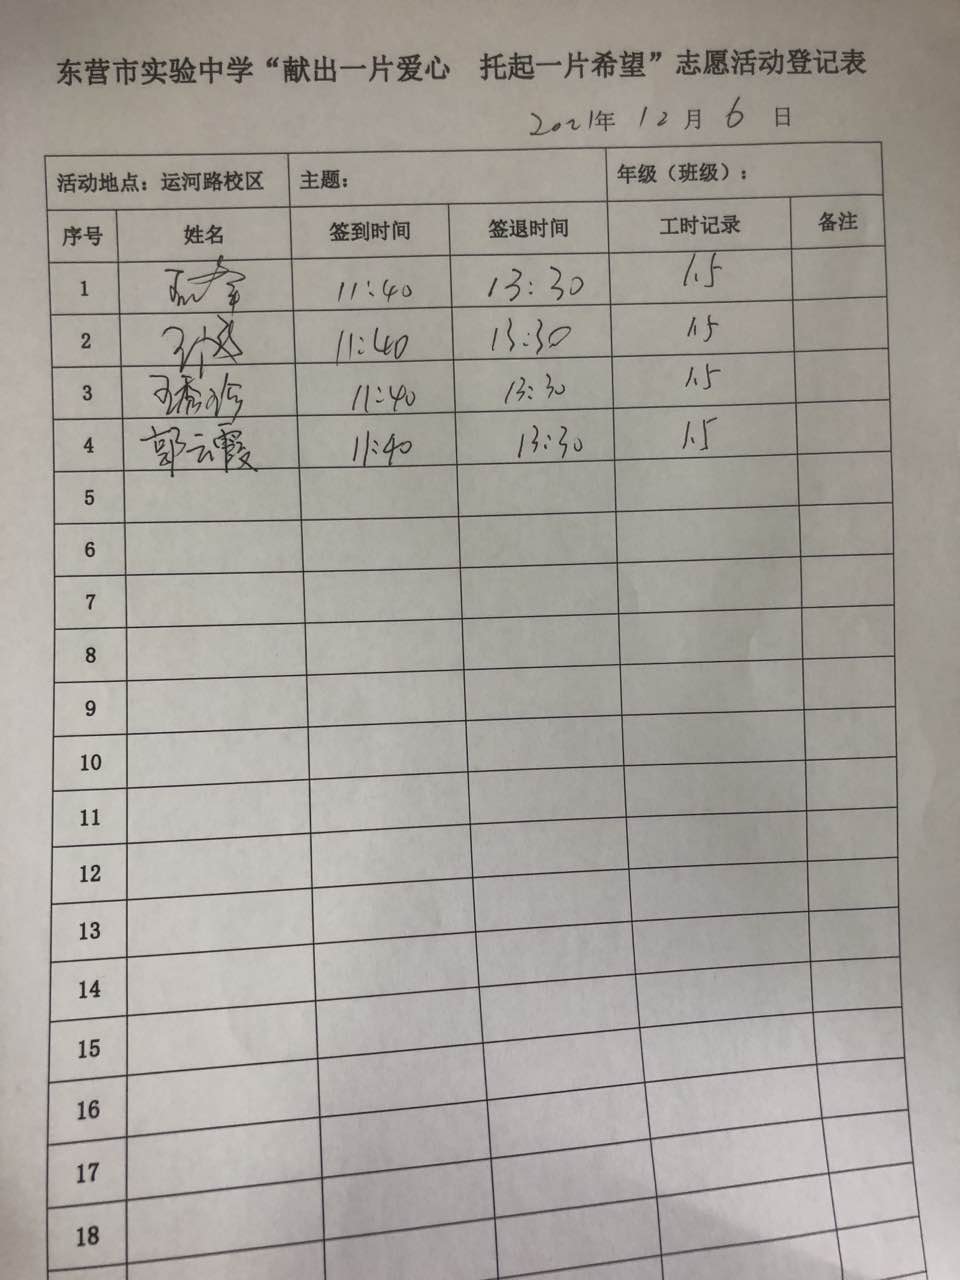 东营市实验中学“献出一片爱心 托起一片希望”志愿活动登记表
2021年 12月 6日
活动地点：运河路校区 主题： 年级（班级）：
序号 姓名 签到时间 签退时间 工时记录 备注
1 11:40 13:30 1.5
2 11:40 13:30 1.5
3 王秀珍 11:40 13:30 1.5
4 郭云霞 11:40 13:30 1.5
5
6
7
8
9
10
11
12
13
14
15
16
17
18